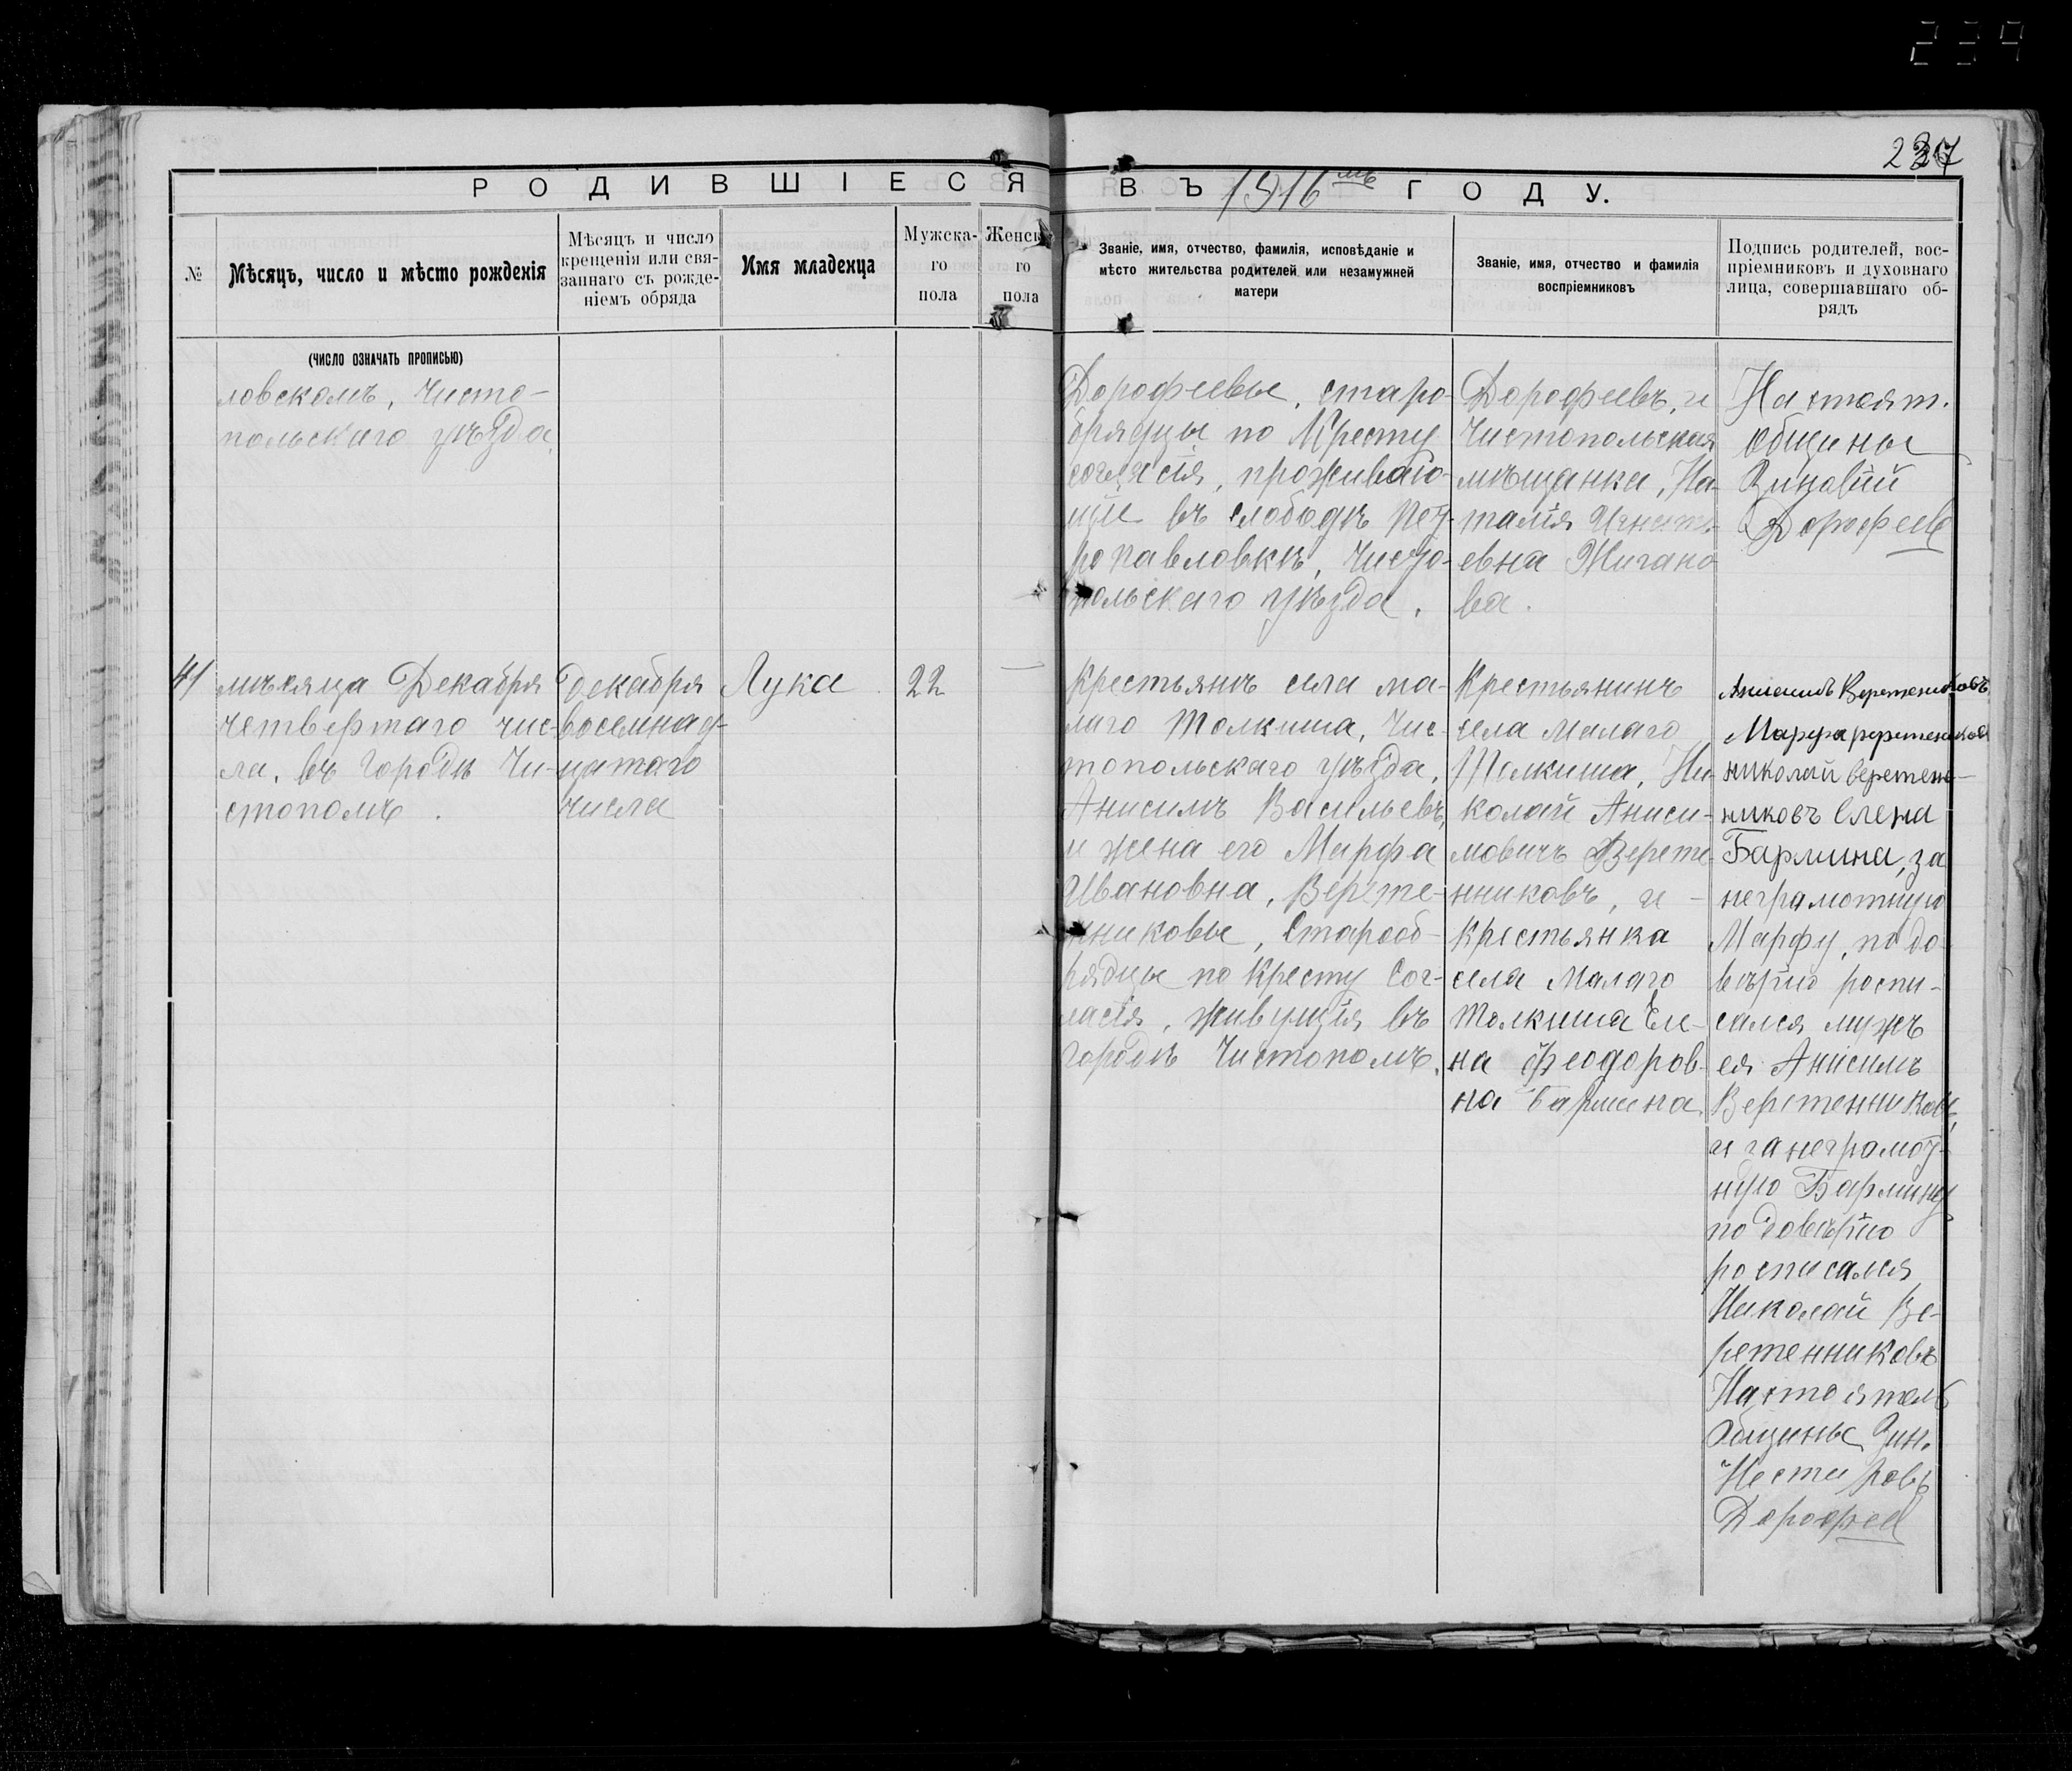 239
237
РОДИВШІЕСЯ ВЪ 1916мъ ГОДУ.
№
Мѣсяцъ, число и мѣсто рожденія
Мѣсяцъ и число
крещенія или свя-
заннаго съ рожде-
ніемъ обряда
Имя младенца
Мужска-
го
пола
Женск
го
пола
Званіе, имя, отчество, фамилія, исповѣданіе и
мѣсто жительства родителей или незамужней
матери
Званіе, имя, отчество и фамилія
воспріемниковъ
Подпись родителей, вос-
пріемниковъ и духовнаго
лица, совершавшаго об-
рядъ
(ЧИСЛО ОЗНАЧАТЬ ПРОПИСЬЮ)
ловскомъ, Чисто-
польскаго уѣзда.
Дорофеевы, старо-
брядцы по Кресту
согласія, проживаю-
щіе въ слободѣ Пет-
ропавловкѣ, Чисто-
польскаго уѣзда.
Дорофеевъ, и
Чистопольская
мѣщанка, На-
талія Игнать-
евна Жигано
ва.
Настоят.
общины
Зиновій
Дорофеев
41
мѣсяца Декабря
четвертаго чис-
ла, въ городѣ Чи-
стополѣ.
Декабря
восемнад-
цатаго
числа
Лука
22
—
Крестьянъ села ма-
лаго Толкиша, Чис-
топольскаго уѣзда,
Анисимъ Васильевъ,
и жена его Марфа
Ивановна, Верете-
нниковы, Старооб-
рядцы по Кресту Сог-
ласія, живущія въ
городѣ Чистополѣ.
Крестьянинъ
села Малаго
Толкиша, Ни-
колай Аниси-
мовичъ Верете-
нниковъ, и -
крестьянка
села Малаго
Толкиша Еле-
на Феодоров-
на Бармина.
Анисимъ Веретениковъ
Марфа веретеникова
николай веретен-
никовъ Елена
Бармина, за
неграмотную
Марфу, по до-
вѣрію роспи-
сался мужъ
ея Анисимъ
Веретенниковъ,
и за неграмот-
ную Бармину
по довѣрію
росписался
Николай Ве-
ретенниковъ
Настоятель
общины Зин.
Нестеровъ
Дорофеев